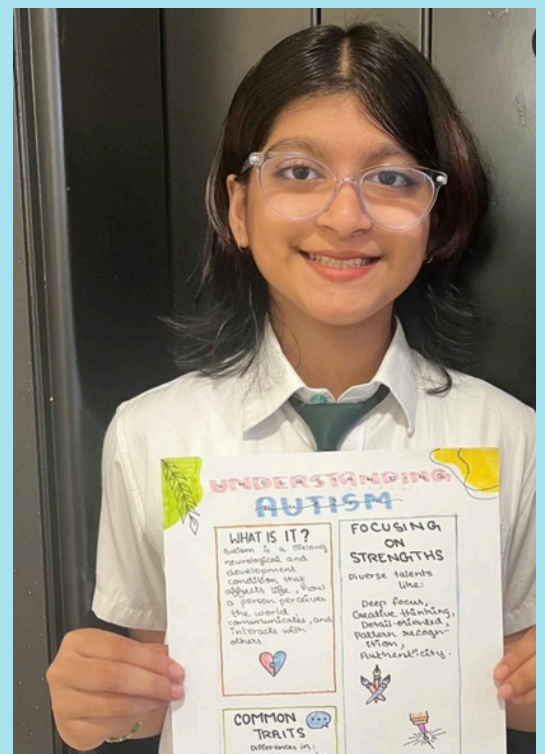 UNDERSTANDING
AUTISM
WHAT IS IT?
Autism is a lifelong
neurological and
development
condition that
affects life, how
a person perceives
the world,
communicates, and
interacts with
others.
COMMON
TRAITS
Differences in:
FOCUSING
ON
STRENGTHS
Diverse talents
like:
Deep focus,
Creative thinking,
Detail-oriented,
Pattern recogn-
ition,
Authenticity.